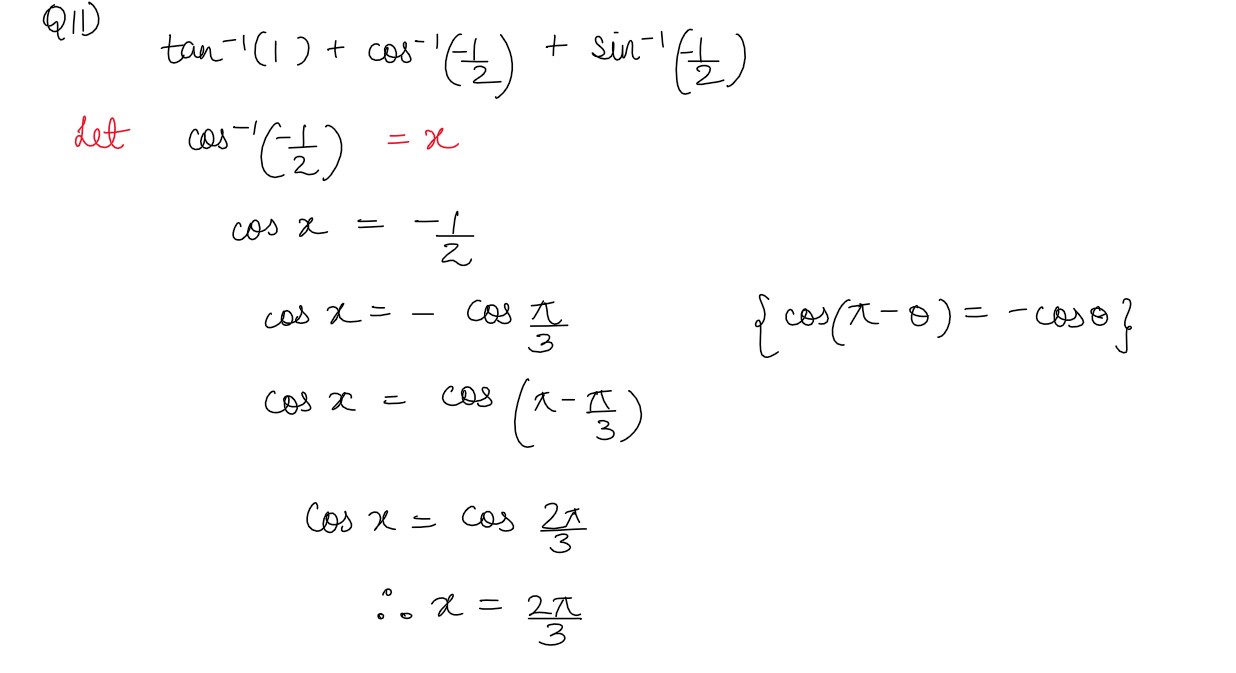 Q11)
tan⁻¹(1) + cos⁻¹(-1/2) + sin⁻¹(-1/2)
Let cos⁻¹(-1/2) = x
cos x = -1/2
cos x = - cos π/3 {cos(π-θ) = -cosθ}
cos x = cos (π-π/3)
Cos x = cos 2π/3
∴ x = 2π/3